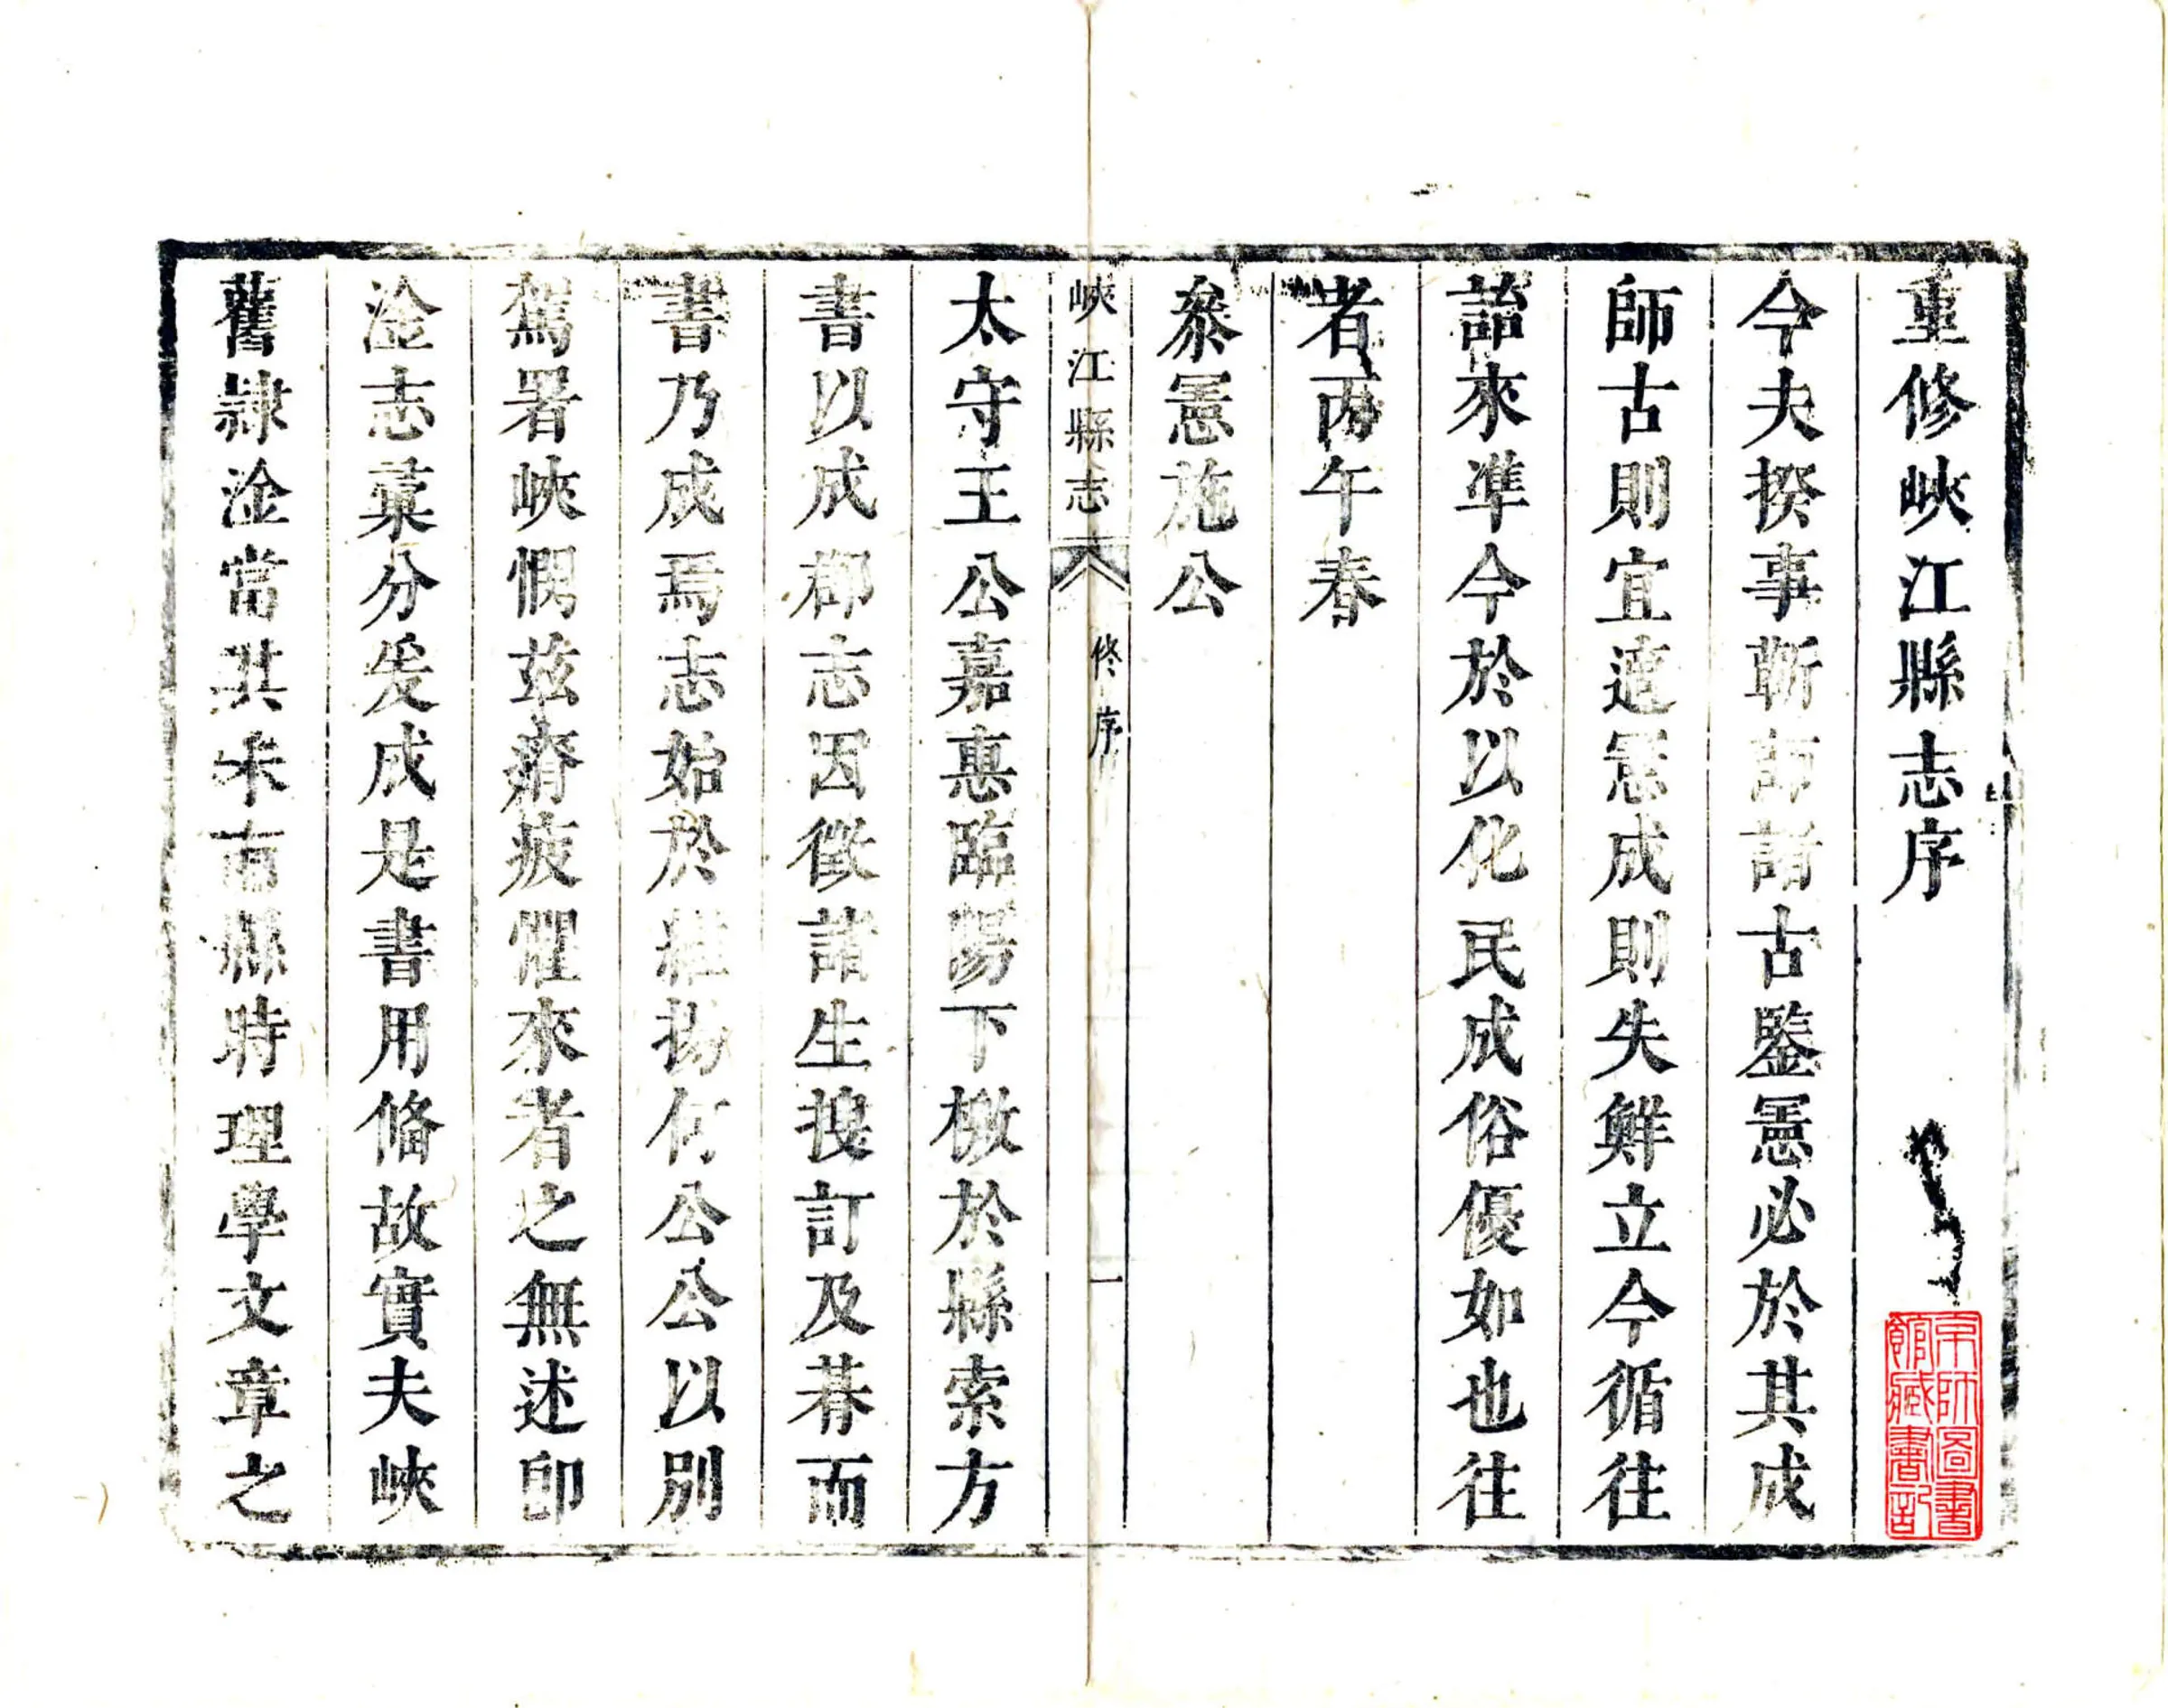 重修峽江縣志序
今夫揆事斬師諸古鑒憲必於其成
師古則宜遠憲成則失鮮立今循往
詒來準今於以化民成俗優如也往
者丙午春
叅憲施公
峽江縣志 修序 一
太守王公嘉惠臨陽下檄於縣索方
書以成郡志因徵諸生搜訂及朞而
書乃成焉志始於何公公以別
駕署峽憫茲瘠疲懼來者之無述印
淦志藁分爰成是書用俻故實夫峽
舊隸淦當其未有縣時理學文章之
京師圖書
館藏書記